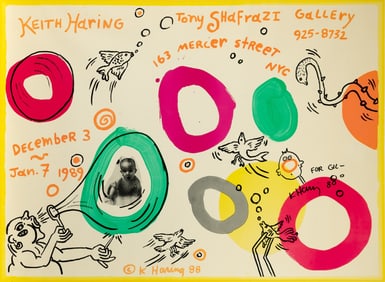 KEITH HARING
Tony SHAFRAZI GALLERY
925-8732
163 MERCER STREET
NYC
DECEMBER 3
~
Jan. 7 1989
FOR GIL-
K. Haring 88
© K. HARING 88